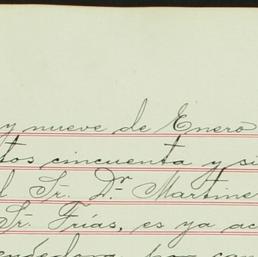 y nueve de Enero
tos cincuenta y si
l Sr. Dr. Martine
Sr. Frías, es ya ac